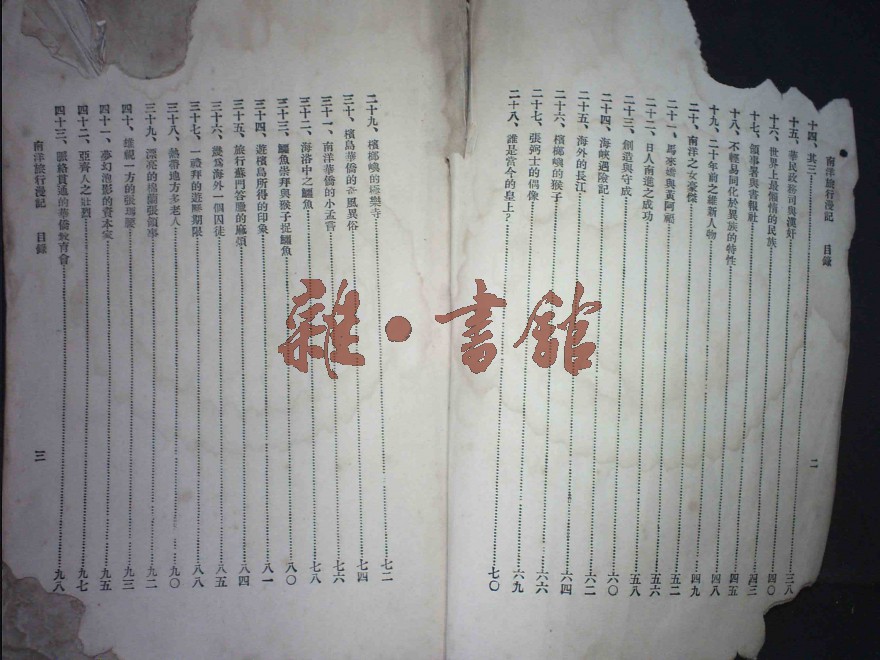 南洋旅行漫記 目錄 二
十四、其三……三八
十五、華民政務司與漢奸……
十六、世界上最懶惰的民族……四〇
十七、領事署與書報社……四三
十八、不輕易同化於異族的特性……四五
十九、二十年前之維新人物……四八
二十、南洋之女豪傑……四九
二十一、馬來嬌與黃阿福……五二
二十二、日人南進之成功……五六
二十三、創造與守成……五八
二十四、海峽遇險記……六〇
二十五、海外的長江……六二
二十六、檳榔嶼的猴子……六四
二十七、張弼士的偶像……六六
二十八、誰是當今的皇上?……六九
七〇
二十九、檳榔嶼的極樂寺……七二
三十、檳島華僑的奇風異俗……七四
三十一、南洋華僑的小孟嘗……七六
三十二、海浴中之鱷魚……七八
三十三、鱷魚崇拜與猴子捉鱷魚……八〇
三十四、遊檳島所得的印象……八一
三十五、旅行蘇門答臘的麻煩……八四
三十六、幾為海外一個囚徒……八五
三十七、一禮拜的遊歷期限……八八
三十八、熱帶地方多老人……九〇
三十九、漂亮的棉蘭張領事……九二
四十、雄視一方的張瑪腰……九三
四十一、夢幻泡影的資本家……九五
四十二、亞齊人之壯烈……九七
四十三、脈絡貫通的華僑教育會……九八
南洋旅行漫記 目錄 三
雜·書館